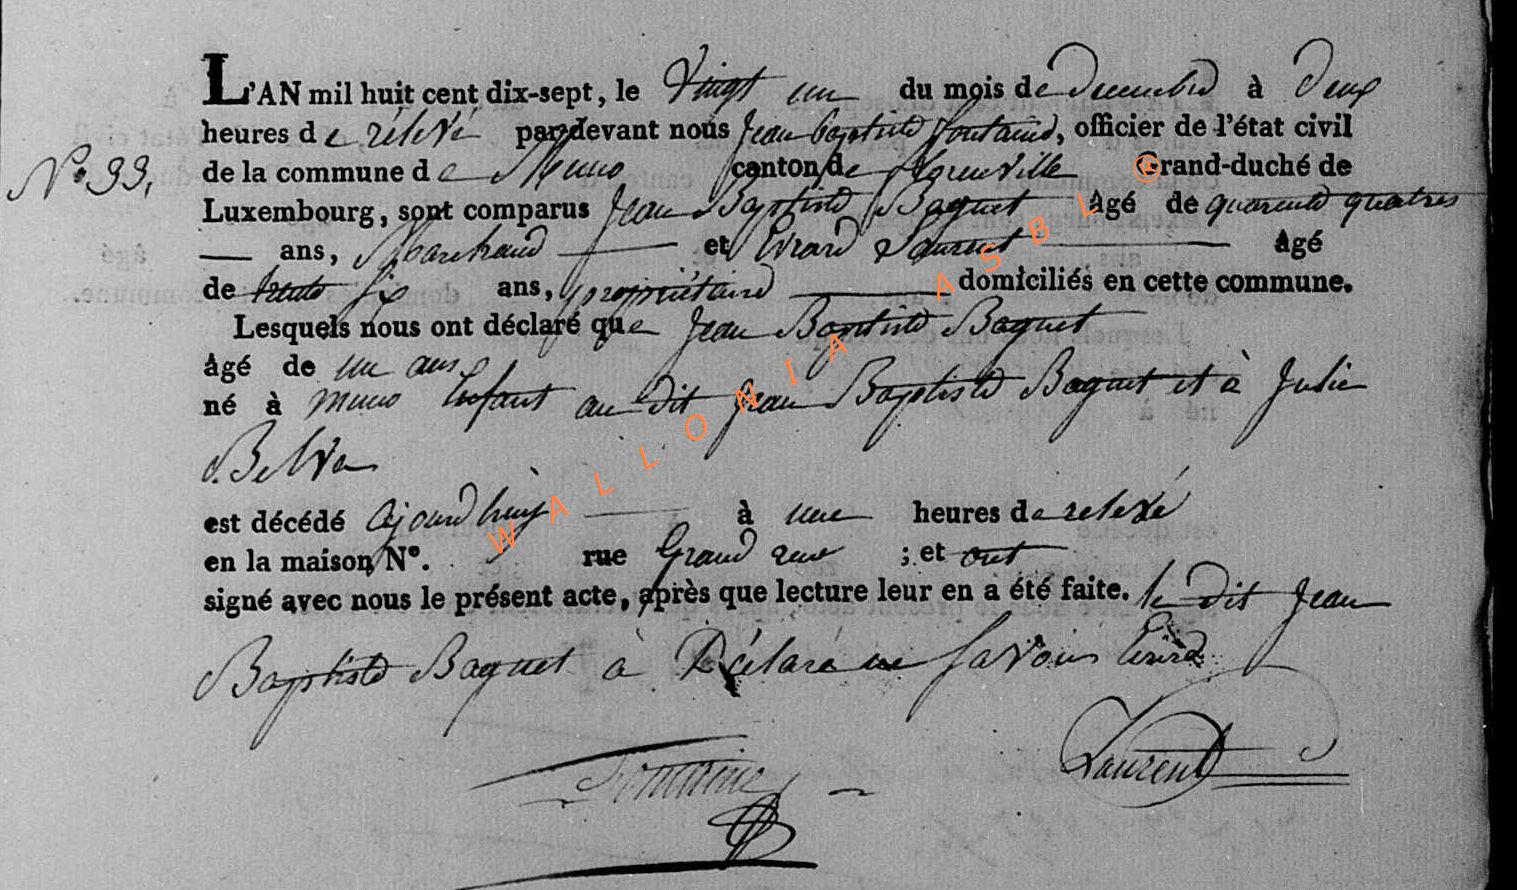 L'AN mil huit cent dix-sept, le vingt un du mois de decembre à deux
heures de rélevé pardevant nous Jean baptiste fontaine, officier de l'état civil
N.° 33, de la commune de Muno canton de Florenville Grand-duché de
Luxembourg, sont comparus Jean Baptiste Baguet âgé de quarente quatres
ans, Marchand et Evrard Laurent âgé
de trente six ans, propriétaire domiciliés en cette commune.
Lesquels nous ont déclaré que Jean Baptiste Baguet
âgé de un ans
né à muno Enfant au dit Jean Baptiste Baguet et à Julie
Belva
est décédé ajourdhuy à une heures de relevé
en la maison N°. rue Grand rue ; et ont
signé avec nous le présent acte, après que lecture leur en a été faite. le dit Jean
Baptiste Baguet à Déclaré ne savoir
Fontaine Laurent
© WALLONIA ASBL